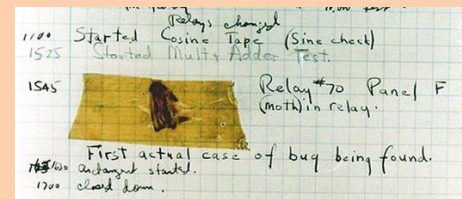 Relays changed
1100 Started Cosine Tape (Sine check)
1525 Started Mult+ Adder Test.
1545 Relay #70 Panel F
(moth) in relay.
First actual case of bug being found.
1630 antangent started.
1700 closed down.